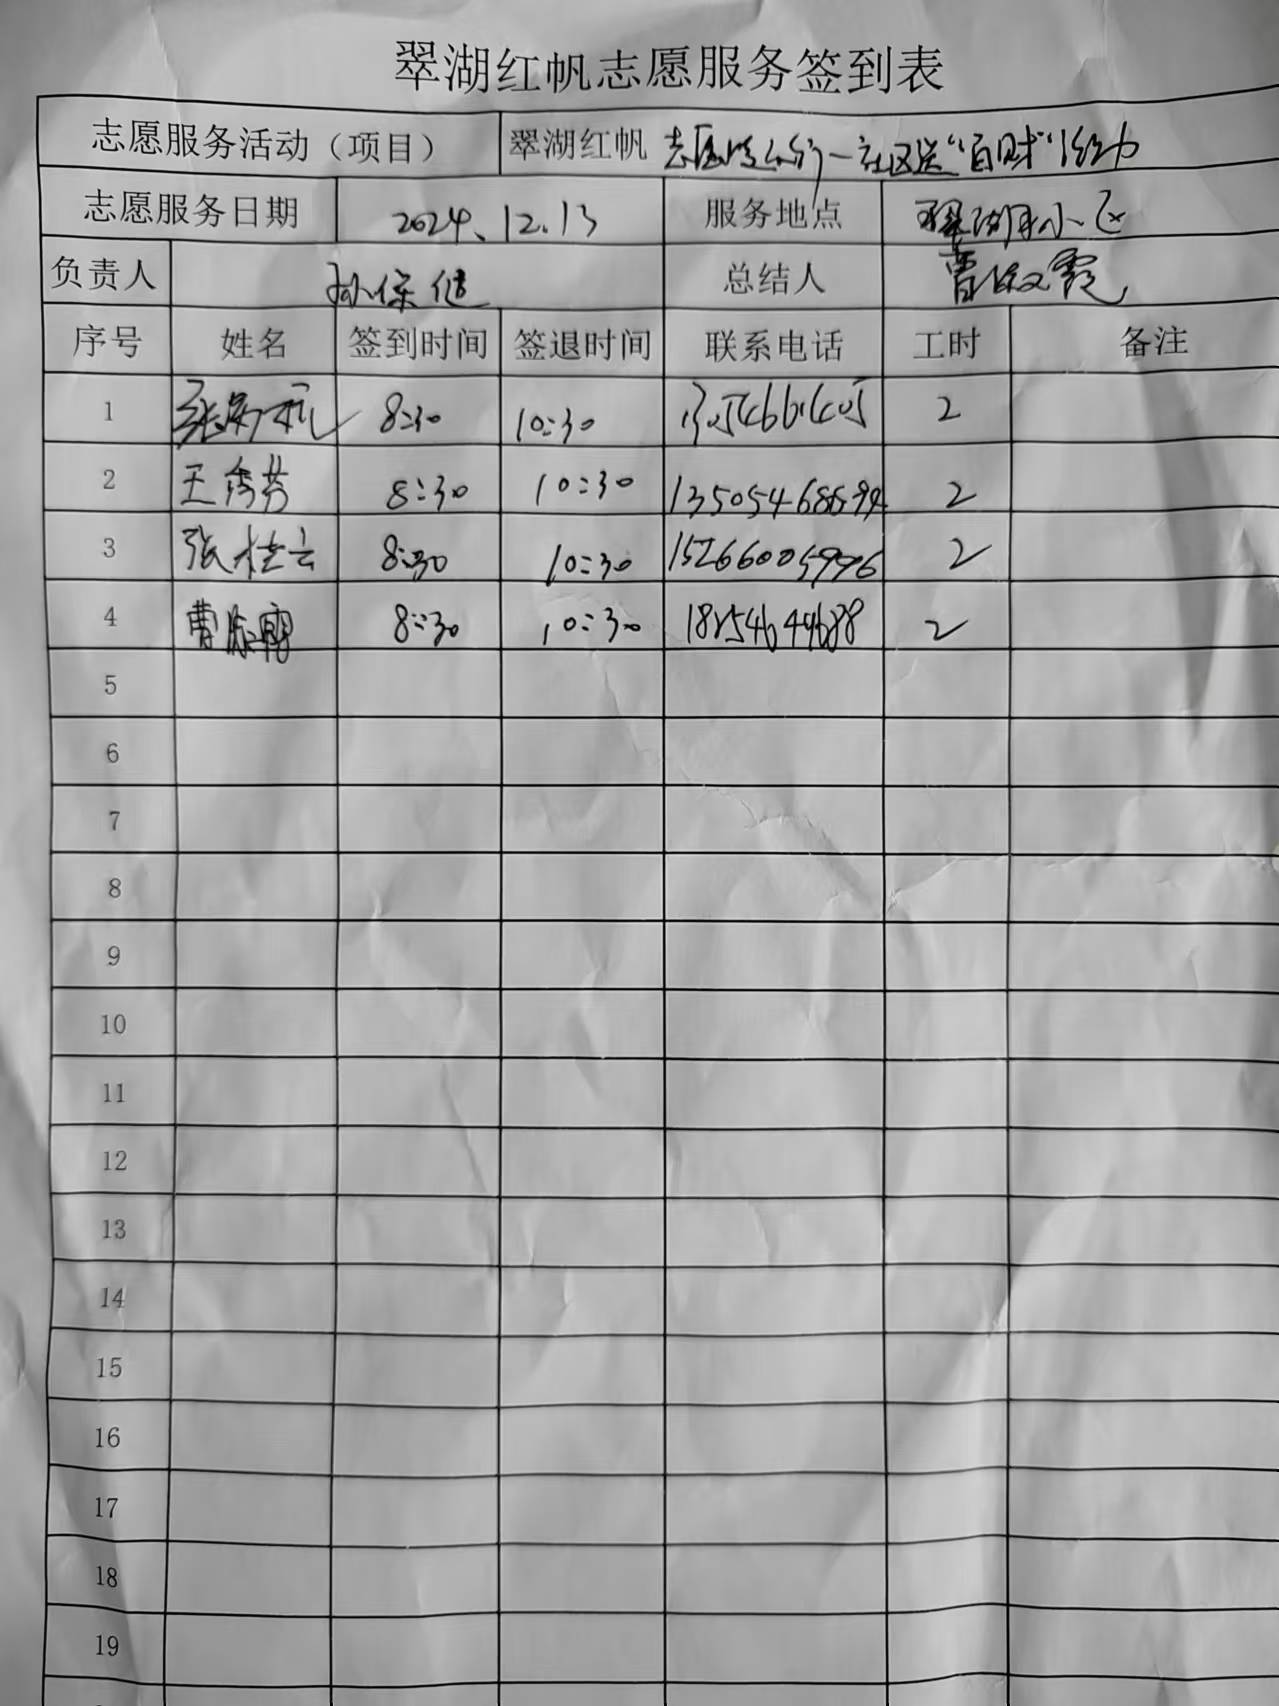 翠湖红帆志愿服务签到表
志愿服务活动（项目） 翠湖红帆 志愿 社区送“百财”活动
志愿服务日期 2024.12.13 服务地点 翠湖小区
负责人 孙保健 总结人 曹 霞
序号 姓名 签到时间 签退时间 联系电话 工时 备注
1 张 8:30 10:30 2
2 王秀芬 8:30 10:30 2
3 张桂云 8:30 10:30 15266005996 2
4 曹 8:30 10:30 18254644688 2
5
6
7
8
9
10
11
12
13
14
15
16
17
18
19